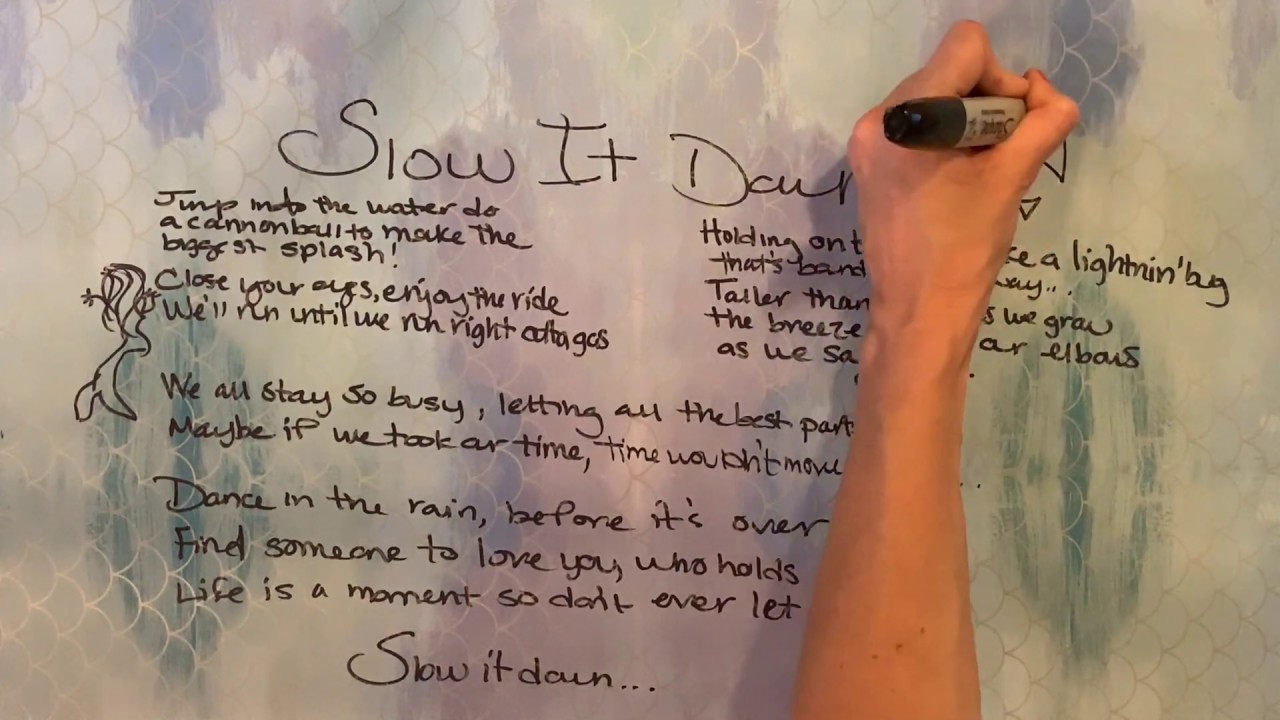 Slow It Down
Jump into the water do
a cannonball to make the
biggest splash!
Close your eyes, enjoy the ride
We'll run until we run right outta gas
Holding ont
that's band
Taller than
the breeze
as we sa
ke a lightnin' bug
way...
s we grow
our elbows
We all stay so busy, letting all the best part
Maybe if we took our time, time wouldn't move
Dance in the rain, before it's over
Find someone to love you, who holds
Life is a moment so don't ever let
Slow it down...
Sharpie